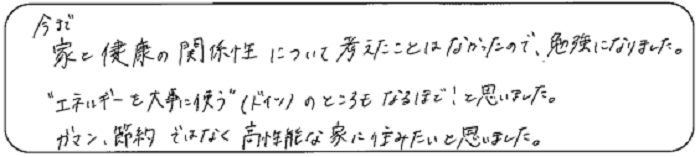 今まで
家と健康の関係性について考えたことはなかったので、勉強になりました。
"エネルギーを大事に使う"(ドイツ)のところも なるほど!と思いました。
ガマン、節約 ではなく 高性能な家に住みたいと思いました。